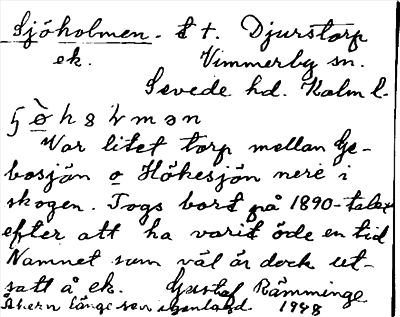 Sjöholmen. t t. Djurstorp
ek. Vimmerby sn.
Sevede hd. Kalm l.
Var litet torp mellan Ge-
bosjän o Hökesjön nere i
skogen. Togs bort på 1890-talet
efter att ha varit öde en tid
Namnet som väl är dock ut-
satt å ek. Gustaf Rämminge
länge sen igenlagd 1948